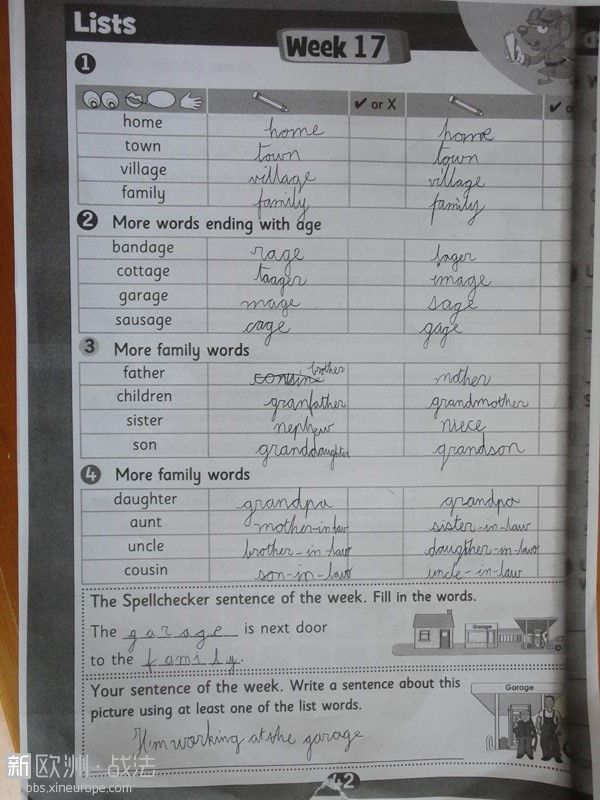 Lists
Week 17
1
✔ or X ✔
home home home
town town town
village village village
family family family
2 More words ending with age
bandage rage
cottage image
garage mage sage
sausage cage gage
3 More family words
father cousine brother mother
children granfather grandmother
sister nephew niece
son granddaughter grandson
4 More family words
daughter grandpa grandpa
aunt mother-in-law sister-in-law
uncle brother-in-law daugther-in-law
cousin son-in-law uncle-in-law
The Spellchecker sentence of the week. Fill in the words.
The garage is next door
to the family.
Garage
Your sentence of the week. Write a sentence about this
picture using at least one of the list words.
Garage
I'm working at the garage
42
新欧洲·战法
bbs.xineurope.com